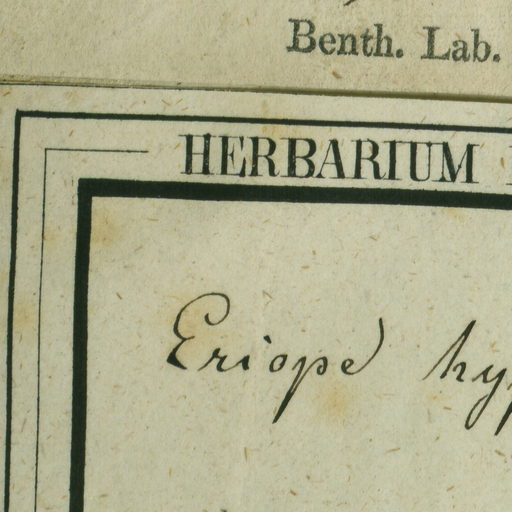 Benth. Lab.
HERBARIUM
Eriope hyp